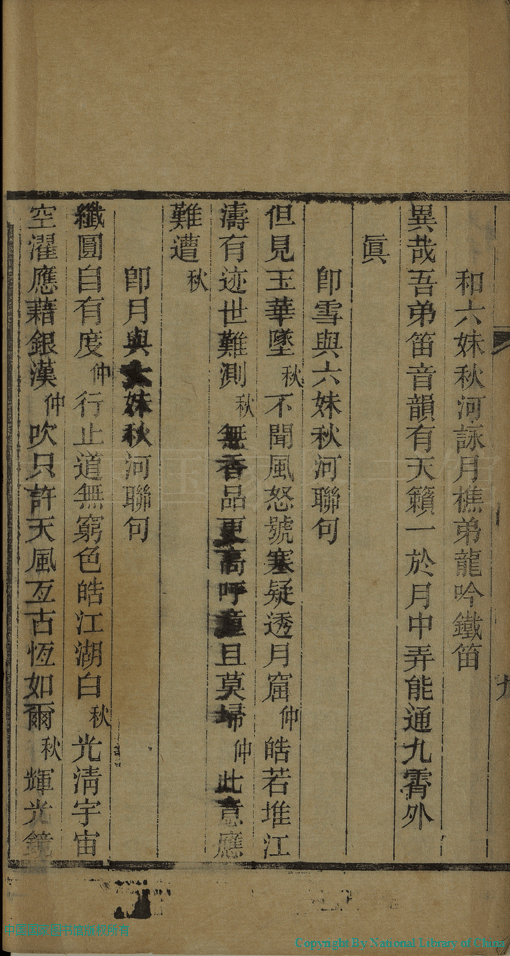 和六妹秋河詠月樵弟龍吟鐵笛
異哉吾弟笛音韻有天籟一於月中弄能通九霄外
眞
卽雪與六妹秋河聯句
但見玉華墜秋不聞風怒號塞疑透月窟仲皓若堆江
濤有迹世難測秋無香品更高呼童且莫埽仲此意應
難遭秋
卽月與六妹秋河聯句
纖圓自有度仲行止道無窮色皓江湖白秋光淸宇宙
空濯應藉銀漢仲吹只許天風亙古恆如爾秋輝光鏡
Copyright By National Library of China